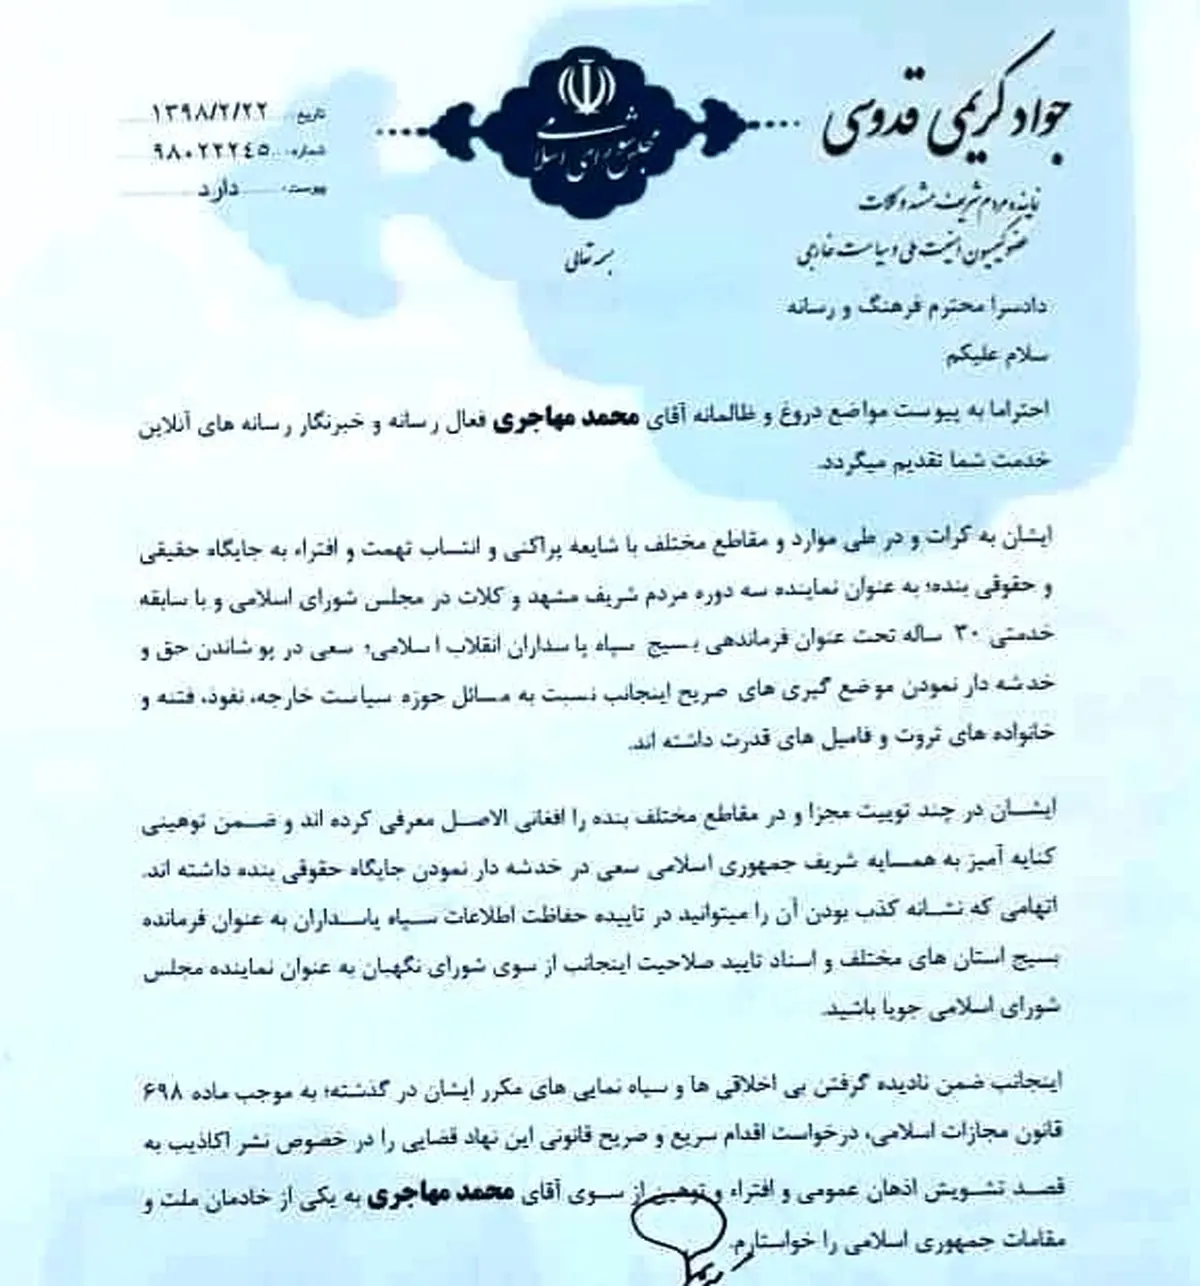 جواد کریمی قدوسی
نماینده مردم شریف مشهد و کلات
عضو کمیسیون امنیت ملی و سیاست خارجی
مجلس شورای اسلامی
تاریخ: ۱۳۹۸/۲/۲۲
شماره: ۹۸۰۲۲۲۴۵
پیوست: دارد
بسمه تعالی
دادسرا محترم فرهنگ و رسانه
سلام علیکم
احتراما به پیوست مواضع دروغ و ظالمانه آقای محمد مهاجری فعال رسانه و خبرنگار رسانه های آنلاین
خدمت شما تقدیم میگردد.
ایشان به کرات و در طی موارد و مقاطع مختلف با شایعه پراکنی و انتساب تهمت و افتراء به جایگاه حقیقی
و حقوقی بنده؛ به عنوان نماینده سه دوره مردم شریف مشهد و کلات در مجلس شورای اسلامی و با سابقه
خدمتی ۳۰ ساله تحت عنوان فرماندهی بسیج سپاه پاسداران انقلاب اسلامی؛ سعی در پوشاندن حق و
خدشه دار نمودن موضع گیری های صریح اینجانب نسبت به مسائل حوزه سیاست خارجه، نفوذ، فتنه و
خانواده های ثروت و فامیل های قدرت داشته اند.
ایشان در چند توییت مجزا و در مقاطع مختلف بنده را افغانی الاصل معرفی کرده اند و ضمن توهینی
کنایه آمیز به همسایه شریف جمهوری اسلامی سعی در خدشه دار نمودن جایگاه حقوقی بنده داشته اند.
اتهامی که نشانه کذب بودن آن را میتوانید در تاییده حفاظت اطلاعات سپاه پاسداران به عنوان فرمانده
بسیج استان های مختلف و اسناد تایید صلاحیت اینجانب از سوی شورای نگهبان به عنوان نماینده مجلس
شورای اسلامی جویا باشید.
اینجانب ضمن نادیده گرفتن بی اخلاقی ها و سیاه نمایی های مکرر ایشان در گذشته؛ به موجب ماده ۶۹۸
قانون مجازات اسلامی، درخواست اقدام سریع و صریح قانونی این نهاد قضایی را در خصوص نشر اکاذیب به
قصد تشویش اذهان عمومی و افتراء و توهین از سوی آقای محمد مهاجری به یکی از خادمان ملت و
مقامات جمهوری اسلامی را خواستارم.